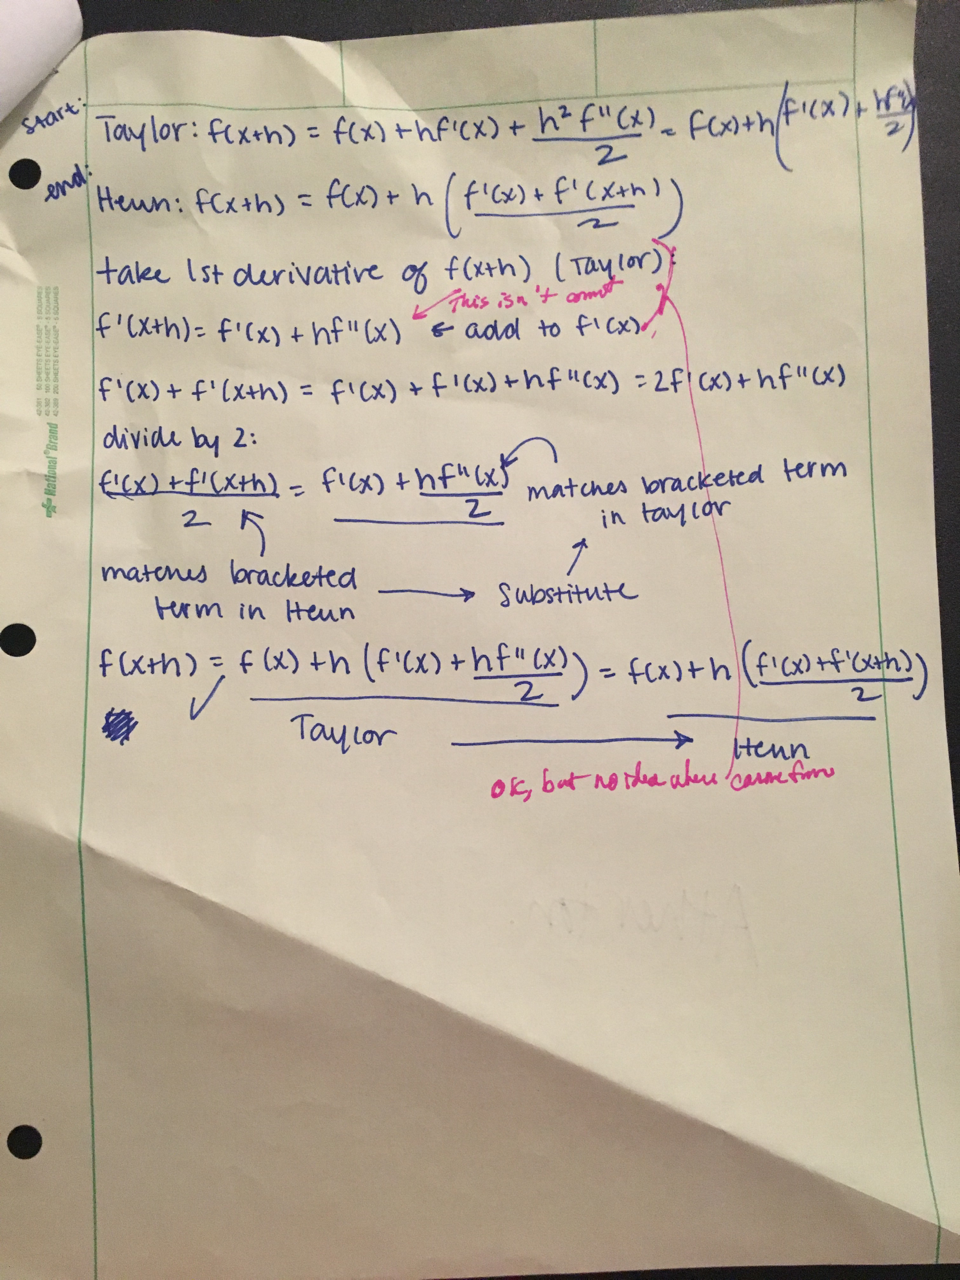 start:
Taylor: f(x+h) = f(x) + hf'(x) + h² f''(x)/2 = f(x) + h(f'(x) + hf''(x)/2)
end:
Heun: f(x+h) = f(x) + h (f'(x) + f'(x+h)/2)
take 1st derivative of f(x+h) (Taylor):
This isn't
f'(x+h) = f'(x) + hf''(x) ← add to f'(x)
f'(x) + f'(x+h) = f'(x) + f'(x) + hf''(x) = 2f'(x) + hf''(x)
divide by 2:
f'(x) + f'(x+h)/2 = f'(x) + hf''(x)/2
matches bracketed term
in taylor
matches bracketed
term in Heun → substitute
f(x+h) = f(x) + h (f'(x) + hf''(x)/2) = f(x) + h (f'(x) + f'(x+h)/2)
✓
Taylor → Heun
OK, but no idea where came from
National Brand